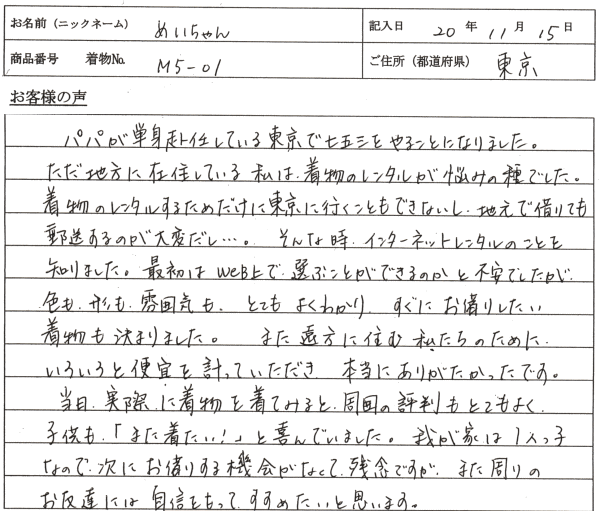 お名前（ニックネーム） めいちゃん 記入日 20 年 11 月 15 日
商品番号 着物No. M5-01 ご住所（都道府県） 東京
お客様の声
パパが単身赴任している東京で七五三をやることになりました。
ただ地方に在住している私は、着物のレンタルが悩みの種でした。
着物のレンタルするためだけに東京に行くこともできないし、地元で借りても
郵送するのが大変だし…。そんな時、インターネットレンタルのことを
知りました。最初はweb上で選ぶことができるのかと不安でしたが、
色も、形も、雰囲気も、とてもよくわかり、すぐにお借りしたい
着物も決まりました。 また遠方に住む私たちのために、
いろいろと便宜を計っていただき 本当にありがたかったです。
当日、実際に着物を着てみると、周囲の評判もとてもよく、
子供も、「また着たい！」と喜んでいました。我が家は1人っ子
なので、次にお借りする機会がなくて、残念ですが、また周りの
お友達には自信をもって、すすめたいと思います。